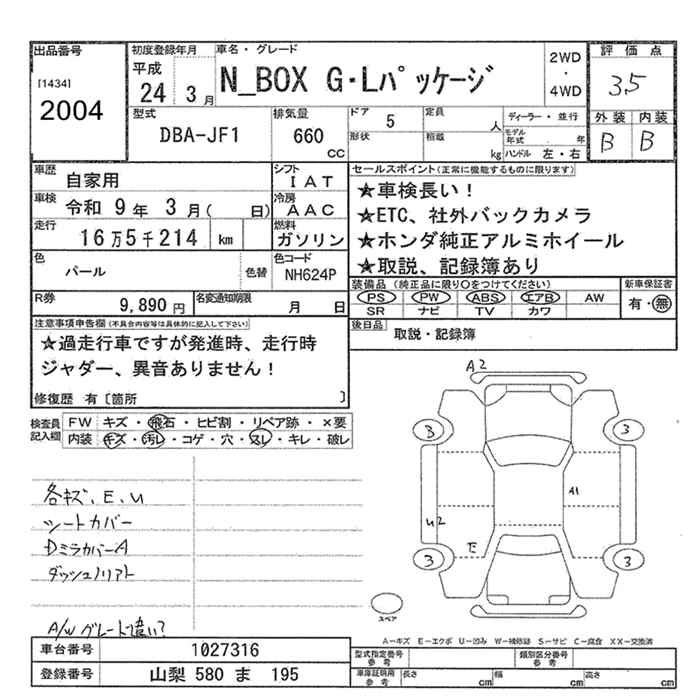 出品番号
[1434]
2004
初度登録年月
平成
24 3月
車名・グレード
N_BOX G・Lパッケージ
2WD
・
4WD
評価点
3.5
外装 内装
B B
型式
DBA-JF1
排気量
660
CC
ドア 5
形状
定員 人
積載 kg
ディーラー・並行
モデル年式 年
ハンドル 左・右
車歴 自家用
シフト IAT
車検 令和 9年 3月( 日)
冷房 AAC
走行 16万5千214 km
燃料 ガソリン
色 パール
色替
色コード NH624P
R券 9,890円
名変通知期限 月 日
セールスポイント(正常に機能するものに限ります)
★車検長い!
★ETC、社外バックカメラ
★ホンダ純正アルミホイール
★取説、記録簿あり
装備品 (純正品に限り○をつけてください)
PS PW ABS エアB AW
SR ナビ TV カワ
新車保証書
有・無
後日品 取説・記録簿
注意事項申告欄(不具合内容等は具体的に記入して下さい)
★過走行車ですが発進時、走行時
ジャダー、異音ありません!
修復歴 有〔箇所 〕
検査員記入欄
FW キズ・飛石・ヒビ割・リペア跡・×要
内装 キズ・汚れ・コゲ・穴・スレ・キレ・破レ
各キズ、E、U
シートカバー
DミラカバーA
ダッシュノリアト
A/Wグレード違い?
A2
3 3
A1
U2
E
3 3
スペア
A-キズ E-エクボ U-凹み W-補修跡 S-サビ C-腐食 XX-交換済
車台番号 1027316
登録番号 山梨 580 ま 195
型式指定番号
参考
類別区分番号
参考
車庫証明用
参考
長さ cm 幅 cm 高さ cm